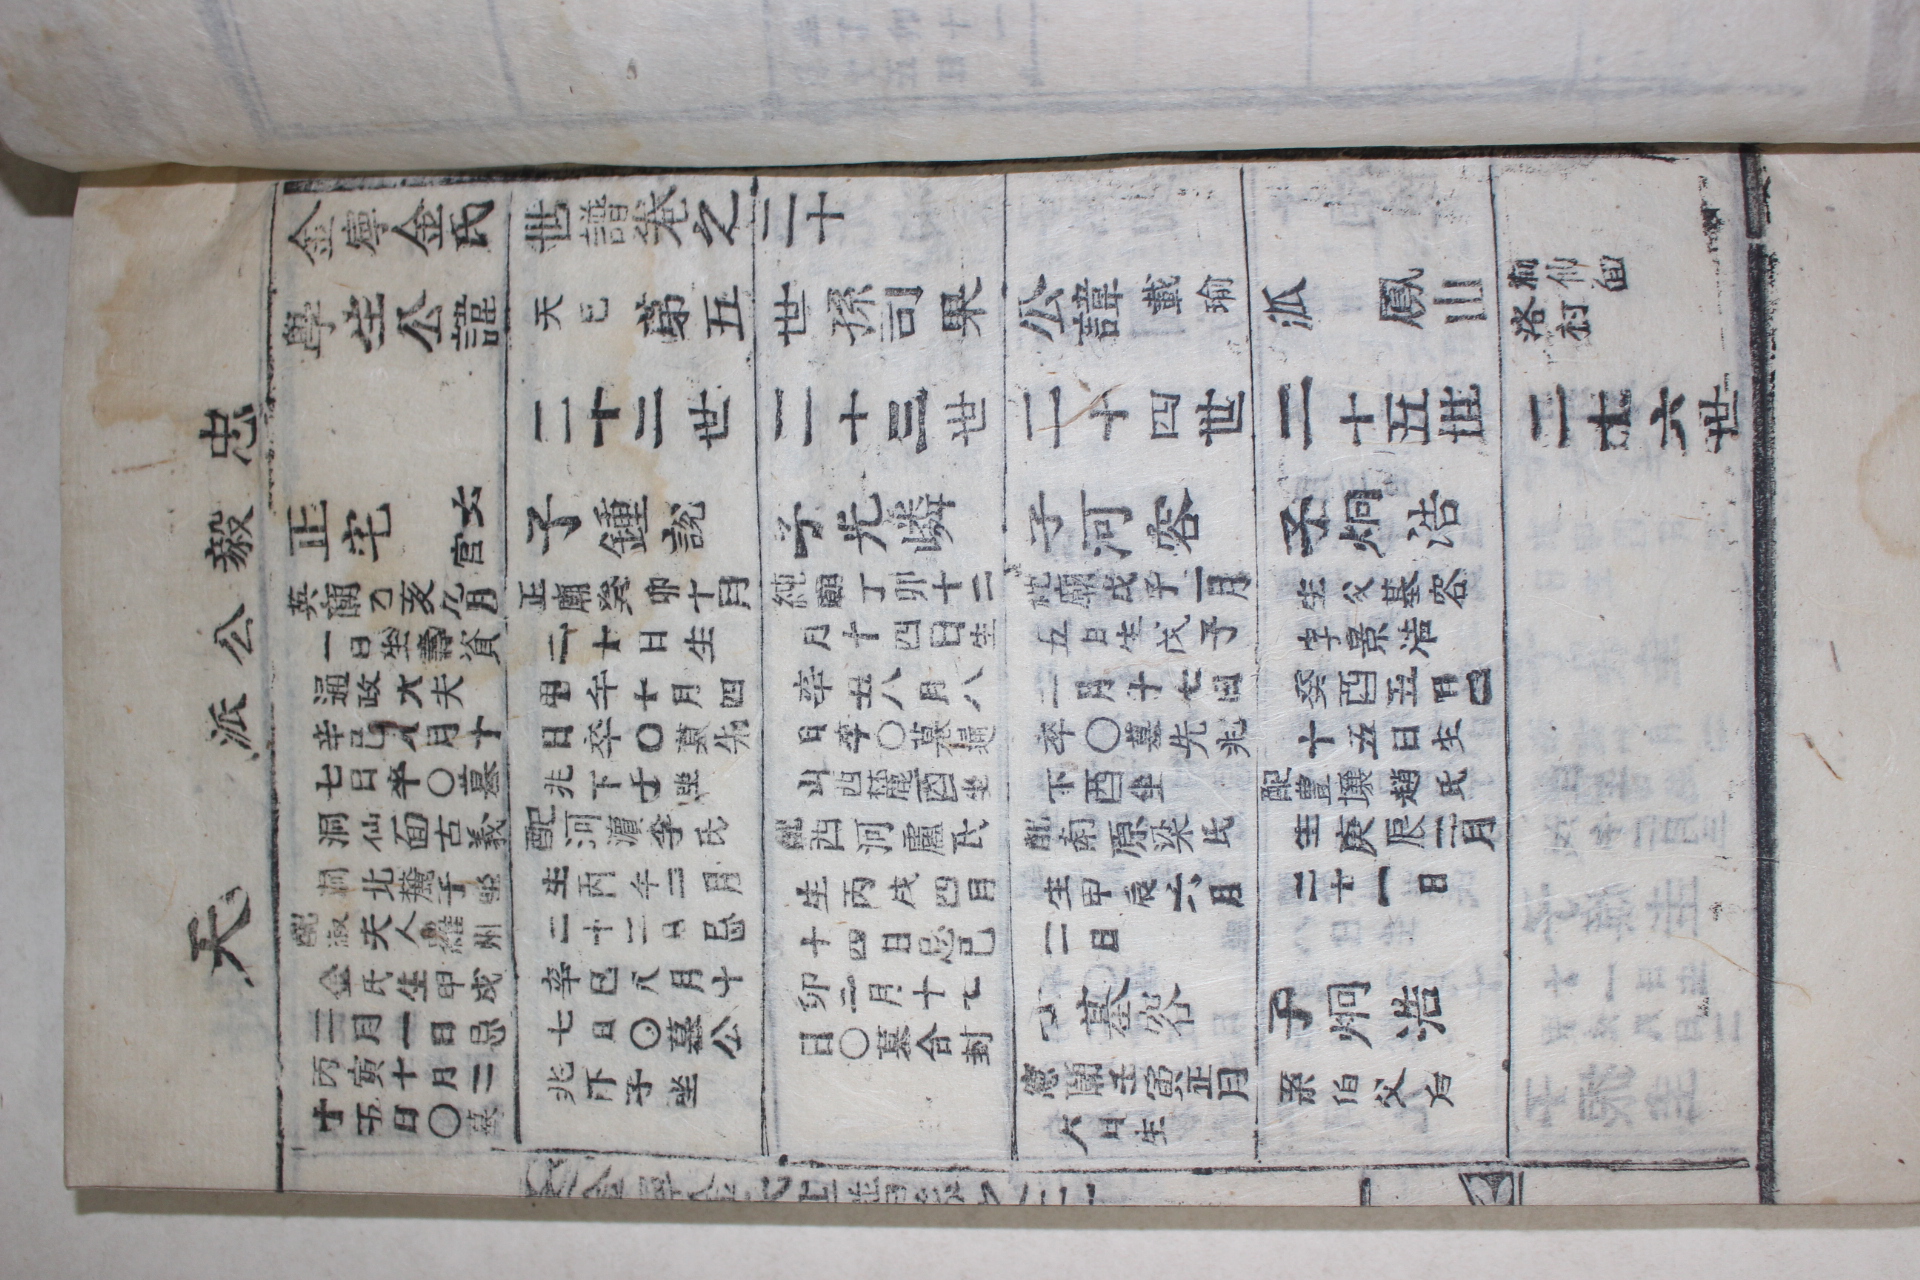 忠毅公派 天
金寧金氏世譜卷之二十
學生公諱天已第五世孫司果公諱載瑜派 鳳山 洞仙面洛村
正宅 官女
英廟乙亥九月
一日生壽資
通政大夫
辛巳八月十
七日卒〇墓
洞仙面古義
洞北麓子坐
配淑夫人羅州
金氏生甲戌
二月十一日忌
丙寅十月二
十五日〇墓
二十二世
子鍾說
正廟癸卯十月
二十日生
甲午十月四
日卒〇墓先
兆下子坐
配河濱李氏
生丙午二月
二十二日忌
辛巳元月十
七日〇墓公
兆下子坐
二十三世
子光嶙
純廟丁卯十二
月十四日生
辛丑八月八
日卒〇墓
山西麓酉坐
配西河盧氏
生丙戌四月
十四日忌己
卯二月十七
日〇墓合封
二十四世
子河容
廟戊子一月
五日生戊子
二月十七日
卒〇墓先兆
下酉坐
配南原梁氏
生甲辰六月
二日
子基容
憲廟壬寅正月
六日生
二十五世
子炯浩
生父基容
字景浩
癸酉五月
十五日生
配豊壤趙氏
生庚辰二月
二十一日
子炯浩
系伯父后
二十六世